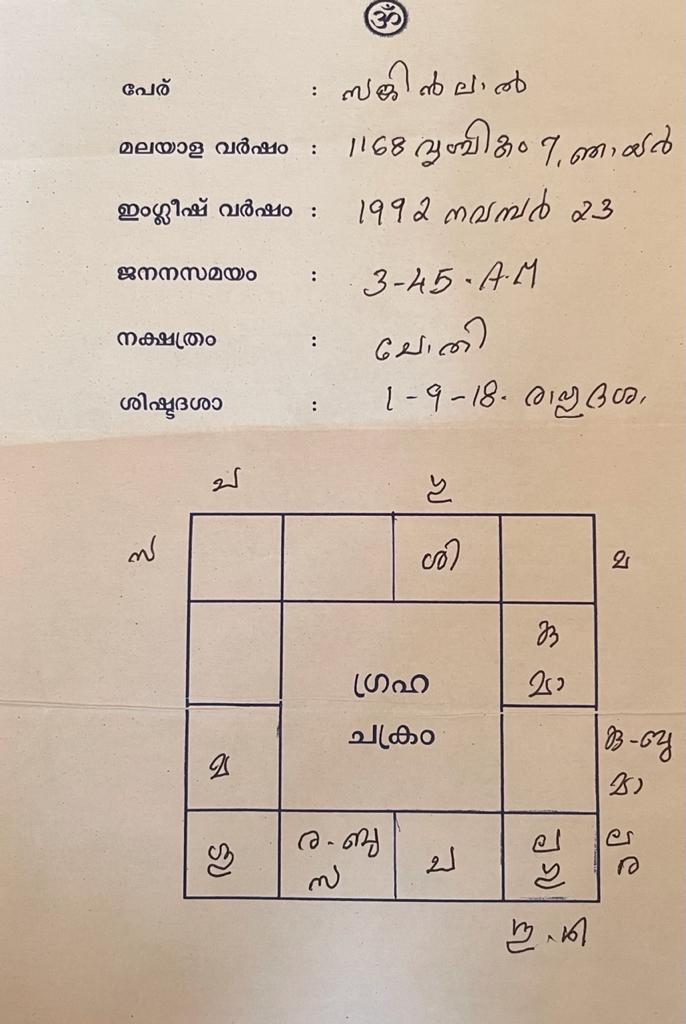 ॐ
പേര് :
മലയാള വർഷം : 1168 വൃശ്ചികം 7, ഞായർ
ഇംഗ്ലീഷ് വർഷം : 1992 നവമ്പർ 23
ജനനസമയം : 3-45. A.M
നക്ഷത്രം : ചോതി
ശിഷ്ടദശാ : 1-9-18. രാഹുദശ
ച ഗു
സ ശി മ
കു
മാ
ഗ്രഹ
ചക്രം
കു-ബു
മാ
മ
ശു ര-ബു ച ല ല
സ ഗു ര
ശു.ശി